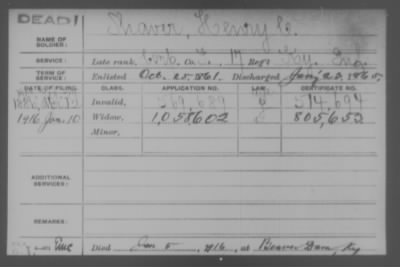 DEAD!
NAME OF SOLDIER: Shaver, Henry C.
SERVICE: Late rank, Corp. Co. E, 17 Reg't Ky. Inf.
TERM OF SERVICE: Enlisted Oct. 25, 1861. Discharged Jan'y 23, 1865.
DATE OF FILING. CLASS. APPLICATION NO. LAW. CERTIFICATE NO.
Invalid, 569,689 514,694
1916 Jan. 10 Widow, 1,058602 805,652
Minor,
ADDITIONAL SERVICES:
REMARKS:
Died Jan 5, 1916, at Beaver Dam, Ky